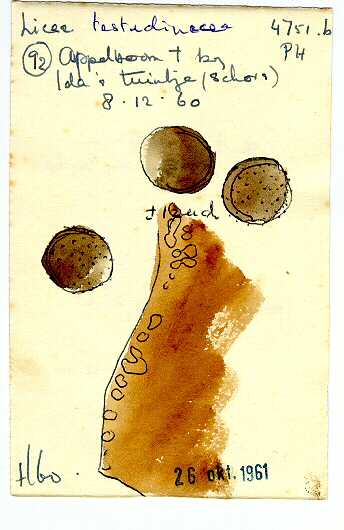 Licea testudinacea 4751.b
92 Appelboom + by PH
Ida's tuintje (schors)
8.12.60
± 10 ud
H60.
26 okt. 1961